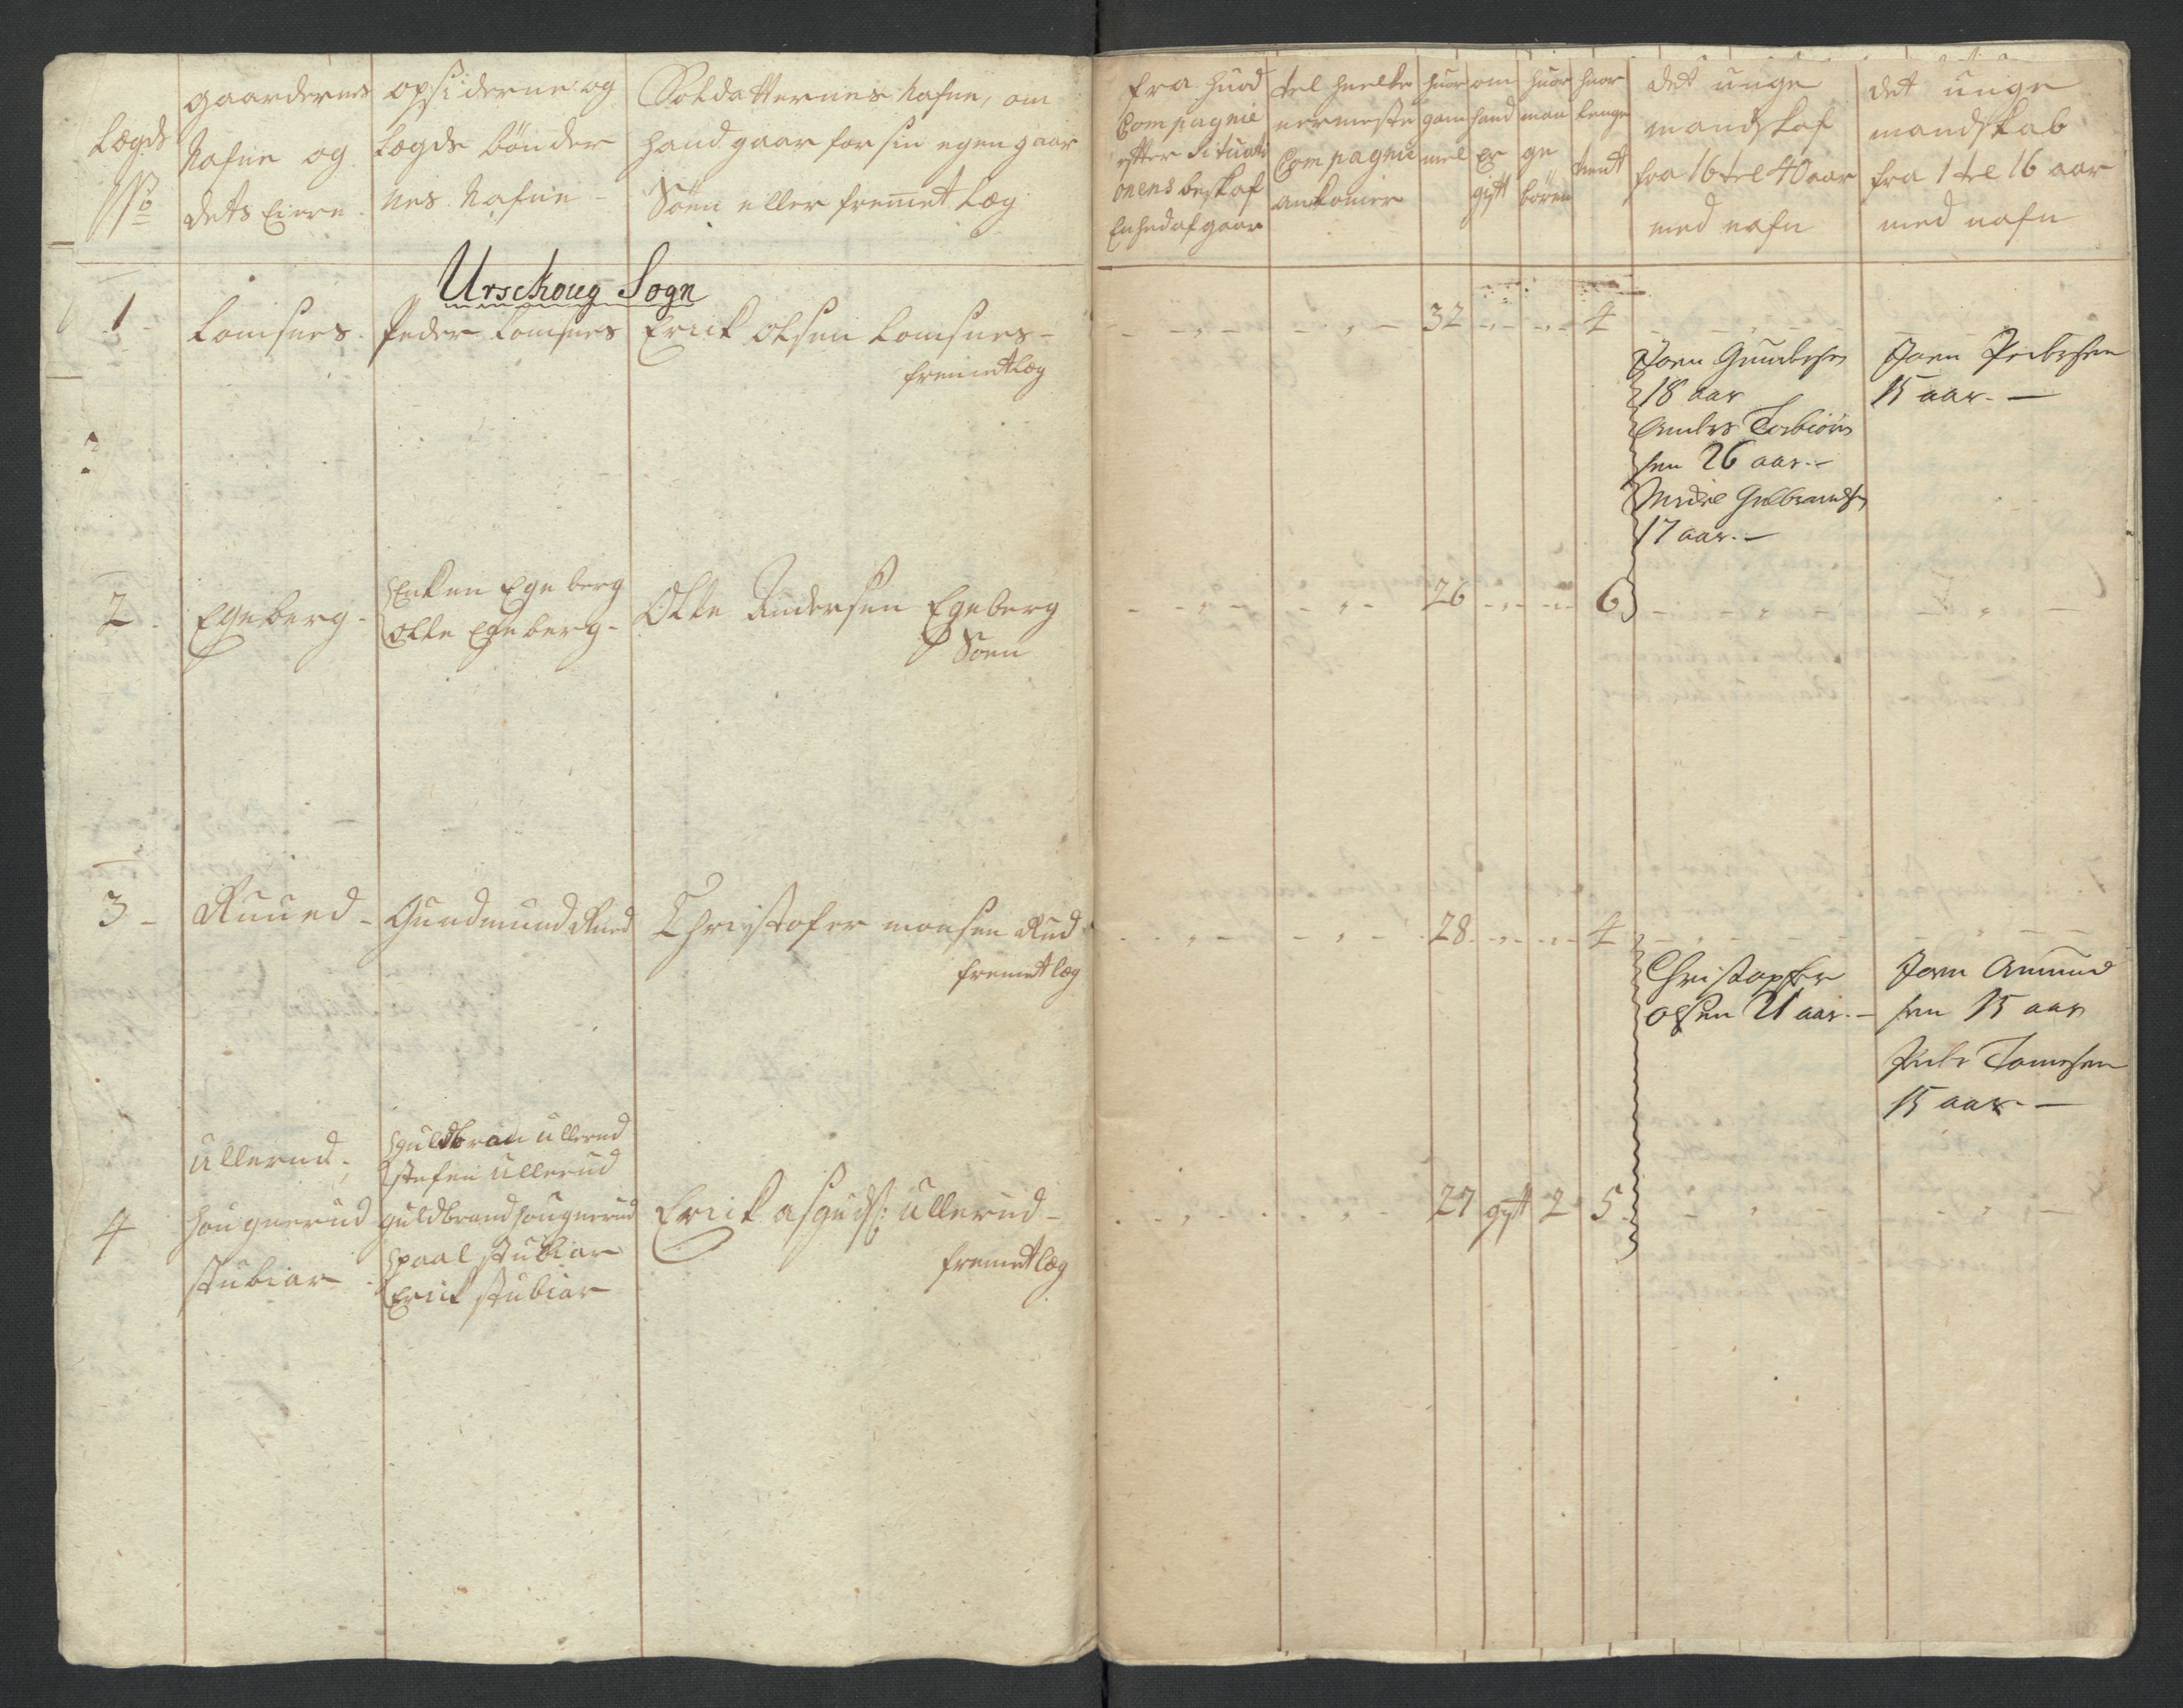 Lægds
No
gaardernes
Nafne og
dets Eiere
opsiderne og
Lægds bønder
nes Nafne -
Soldatternes Nafne, om
hand gaar for sin egen gaar
Søen eller fremet læg
fra huad
Compagnie
efter Situati
onens beskaf
Enhed afgaar
til huilke
nermeste
Compagnie
ankomer
huor
gam
mel
om
hand
Er
gift
huor
man
ge
børen
huor
lenge
tient
det unge
mandskaf
fra 16 til 40 aar
med nafn
det unge
mandskab
fra 1 til 16 aar
med nafn
Urschoug Sogn
1 - Lomsnes. Peder Lomsnes Erick Olsen Lomsnes -
fremet læg
32 4
Joen Gundersen
18 aar
Anders Torbiörn
sen 26 aar. -
Gulbrandsen
17 aar. -
Joen Pedersen
15 aar. -
2 - Egeberg -
Enken Egeberg
Olle Egeberg -
Olle Andersen Egeberg
Søen
26 6
3 - Ruued - Gundmund Rued Christofer monsen Rud
fremet læg
28 4
Christopher
olsen 21 aar. -
Joen Amund
sen 15 aar
Peder Tomesen
15 aar -
4
ullerud.
hougnerud
stubiar
guldbran ullerud
stefen ullerud
guldbrand hougnerud
paal stubiar
Erick stubiar
Erick asguds: ullerud -
fremet læg
27 gift 2 5